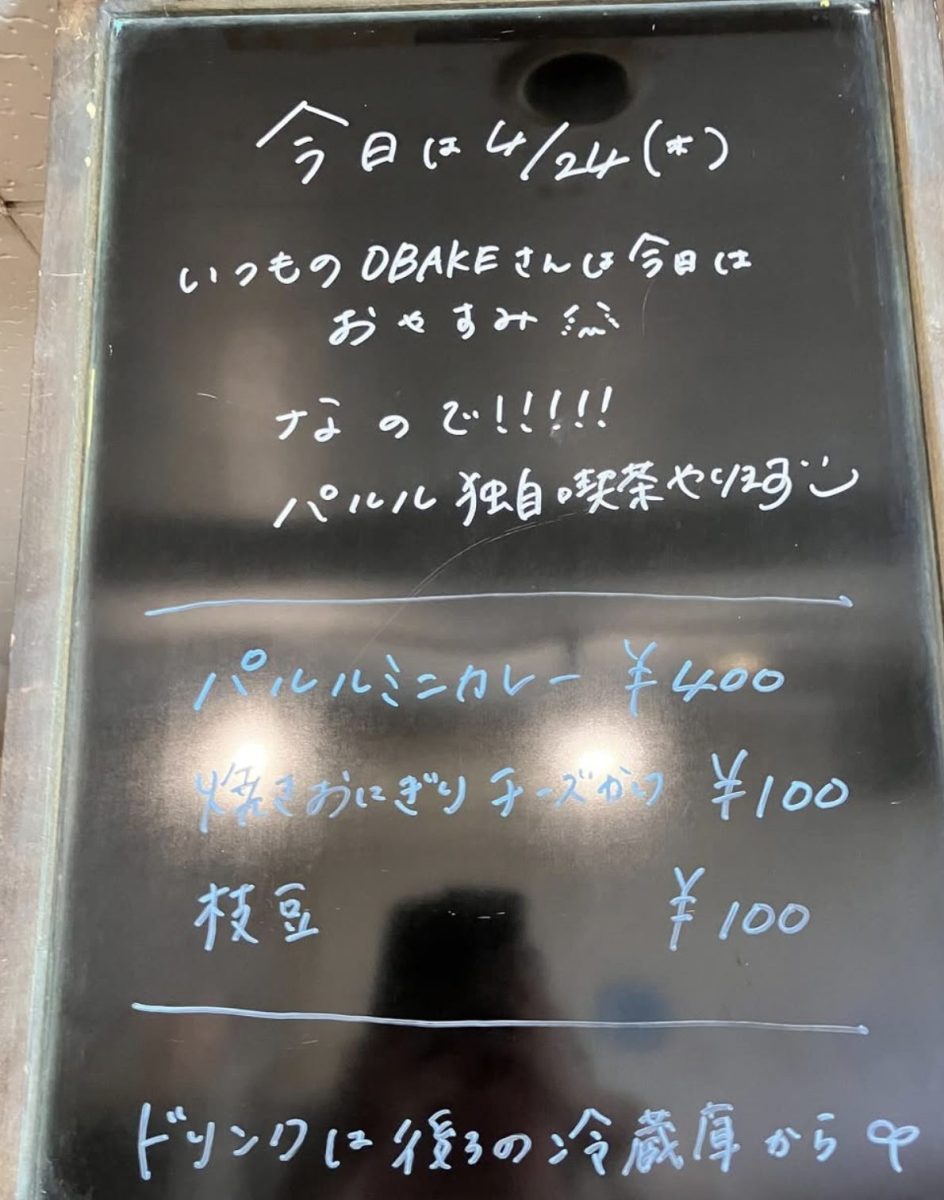 今日は4/24(木)
いつものOBAKEさんは今日は
おやすみ
なので!!!!!
パルル独自喫茶やります
パルルミニカレー ¥400
焼きおにぎりチーズかけ ¥100
枝豆 ¥100
ドリンクは後ろの冷蔵庫から